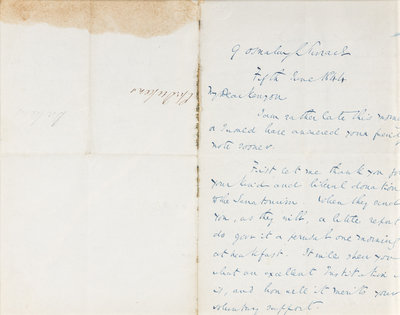 9 Osnaburgh Terrace
Fifth June 1844
My Dear Kenyon
I am rather late this morning
or I would have answered your
note sooner.
First let me thank you for
your kind and liberal donation
to the Sanatorium. When they send
you, as they will, a little report
do give it a perusal one morning
at breakfast. It will shew you
what an excellent Institution it
is, and how well it merits your
voluntary support.
C Dickens